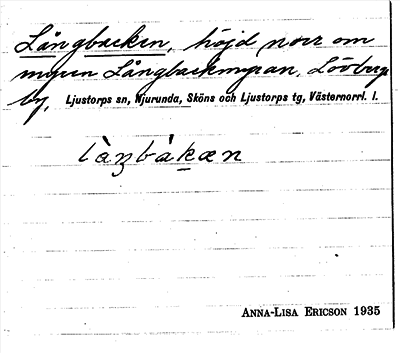 Långbacken, höjd norr om
myren Långbackmyran, Lövberge
by, Ljustorps sn, Njurunda, Sköns och Ljustorps tg, Västernorrl. l.
làŋbákæn
ANNA-LISA ERICSON 1935